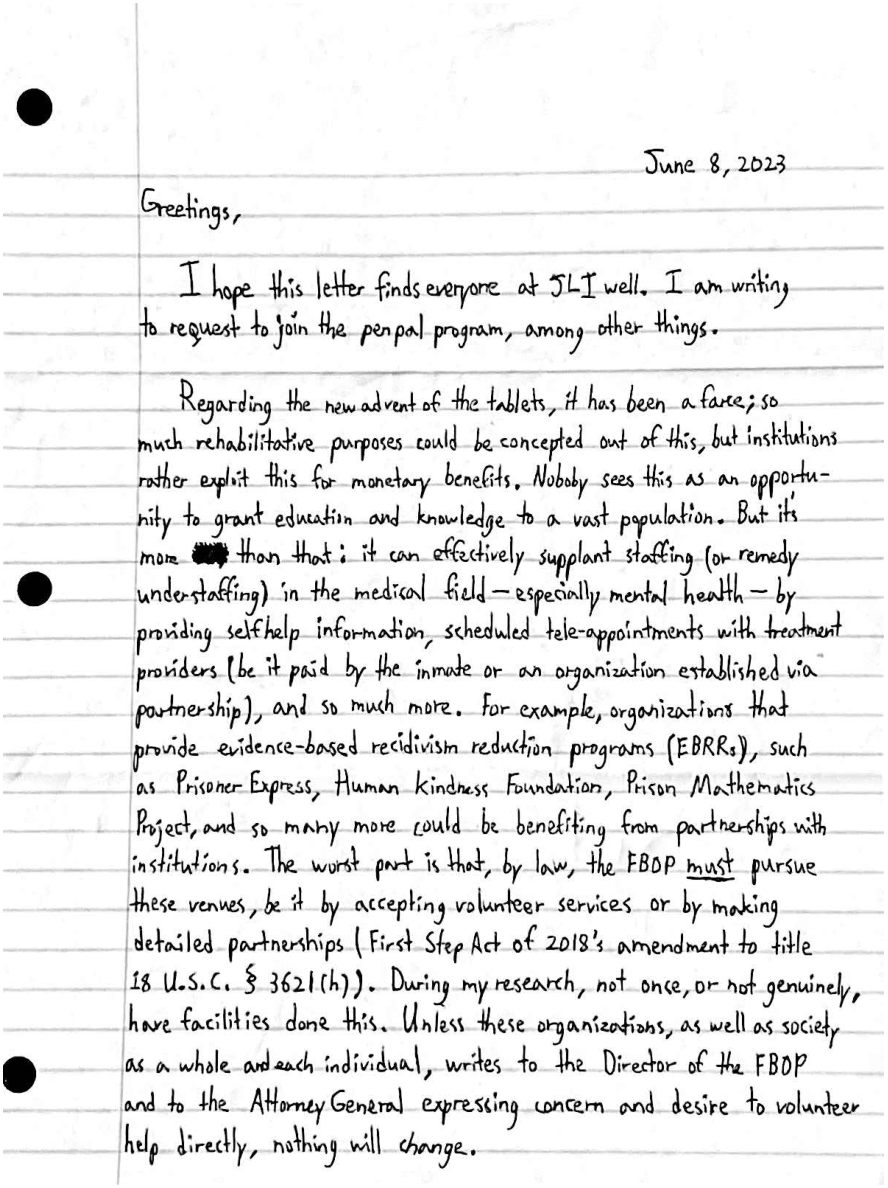 June 8, 2023
Greetings,
I hope this letter finds everyone at JLI well. I am writing
to request to join the penpal program, among other things.
Regarding the new advent of the tablets, it has been a farce; so
much rehabilitative purposes could be concepted out of this, but institutions
rather exploit this for monetary benefits. Noboby sees this as an opportu-
nity to grant education and knowledge to a vast population. But it's
more than that: it can effectively supplant staffing (or remedy
understaffing) in the medical field - especially mental health - by
providing selfhelp information, scheduled tele-appointments with treatment
providers (be it paid by the inmate or an organization established via
partnership), and so much more. For example, organizations that
provide evidence-based recidivism reduction programs (EBRRs), such
as Prisoner Express, Human Kindness Foundation, Prison Mathematics
Project, and so many more could be benefiting from partnerships with
institutions. The worst part is that, by law, the FBOP must pursue
these venues, be it by accepting volunteer services or by making
detailed partnerships (First Step Act of 2018's amendment to title
18 U.S.C. § 3621(h)). During my research, not once, or not genuinely,
have facilities done this. Unless these organizations, as well as society
as a whole and each individual, writes to the Director of the FBOP
and to the Attorney General expressing concern and desire to volunteer
help directly, nothing will change.